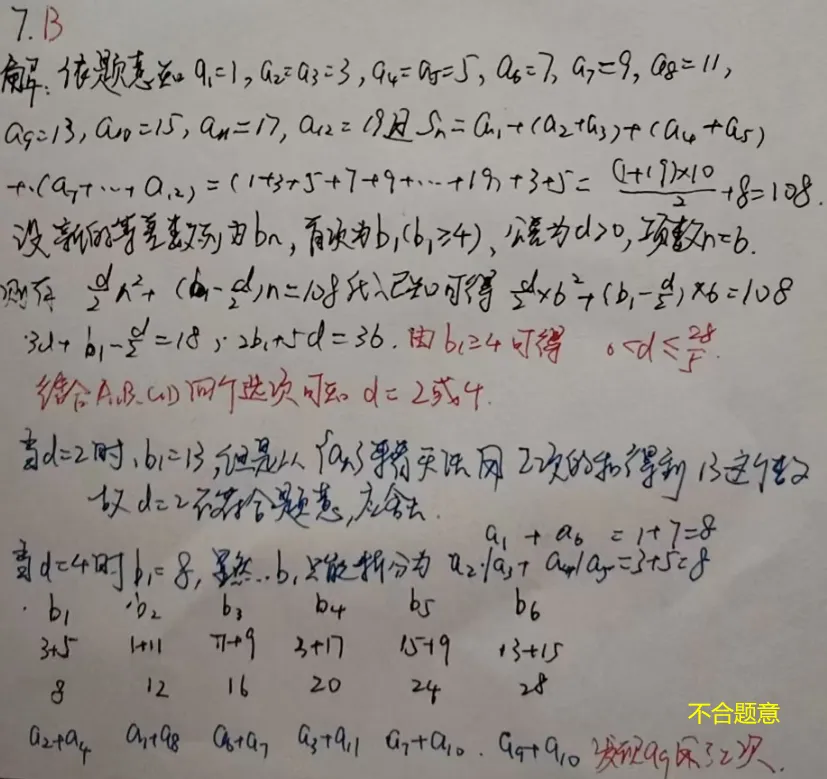 7.B
解:依题意知 a₁=1, a₂=a₃=3, a₄=a₅=5, a₆=7, a₇=9, a₈=11,
a₉=13, a₁₀=15, a₁₁=17, a₁₂=19且 Sₙ=a₁+(a₂+a₃)+(a₄+a₅)
+(a₇+…+a₁₂)=(1+3+5+7+9+…+19)+3+5=(1+19)×10/2+8=108.
设新的等差数列为bn, 首次为b₁(b₁≥4)、公差为d>0, 项数n=6.
则有 d/2n²+(b₁-d/2)n=108代入已知可得 d/2×6²+(b₁-d/2)×6=108
∴3d+b₁-d/2=18 ∴2b₁+5d=36. 由b₁≥4可得 0<d≤28/5.
结合A.B.C.D四个选项可知 d=2或4.
当d=2时,b₁=13,但是从{aₙ}无法两项的和得到13这个数
故d=2不符合题意,应舍去.
a₁+a₆=1+7=8
当d=4时b₁=8,显然..b₁只能拆分为 a₂/a₃+a₄/a₅=3+5=8
b₁ b₂ b₃ b₄ b₅ b₆
3+5 1+11 7+9 3+17 15+9 13+15
8 12 16 20 24 28
不合题意
a₂+a₄ a₁+a₈ a₆+a₇ a₃+a₁₁ a₇+a₁₀ . a₉+a₁₀ 发现a₉用了2次.